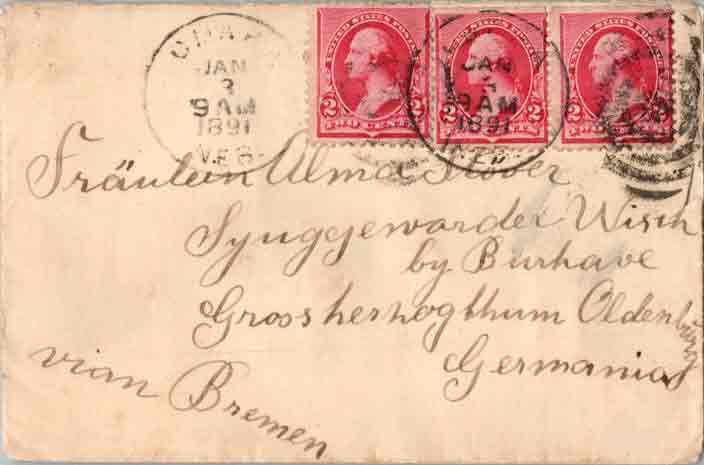 JAN
3
9 AM
1891
NEB.
UNITED STATES POSTAGE
2 2
TWO CENTS
JAN
3
9 AM
1891
NEB.
UNITED STATES POSTAGE
2 2
UNITED STATES POSTAGE
2
Fräulein Alma Stover
Syuggewarder Wisch
by Burhave
Grossherzogthum Oldenburg
Germania
vian Bremen